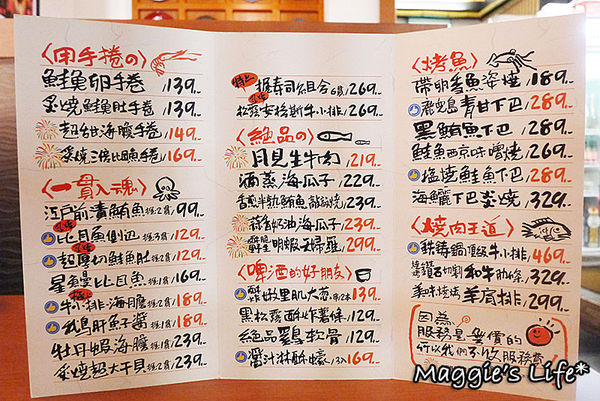 〈用手捲の〉
鮭魚卵手捲 139.
炙燒鮭魚肚手捲 139.
超甜海膽手捲 149.
炙燒比目魚手捲 169.
〈一貫入魂〉
江戶前漬鮪魚 握2食 99.
比目魚側边 握3食 129.
超厚切鮭魚肚 握2食 129.
星鰻比目魚 169.
牛小排海膽 握2食 189.
鵝肝魚子醬 握2食 189.
牡丹蝦海膽 握2食 239.
炙燒超大干貝 握2食 239.
握壽司組合 6貫 269.
松露安格斯牛小排 269.
〈絕品の〉
月見生牛肉 219.
酒蒸海瓜子 229.
香煎半熟鮪魚 239.
蒜香奶油海瓜子 239.
明蝦 299.
〈啤酒的好朋友〉
故里肌大蔥 串/2本 139.
黑松露酥炸薯條 129.
絕品雞軟骨 129.
醬汁淋酥蠔 /3入 169.
〈烤魚〉
帶卵香魚姿燒 189.
鹿兒島青甘下巴 289.
黑鮪魚下巴 289.
鮭魚西京味噌燒 269.
塩燒鮭魚下巴 289.
海鱺下巴炙燒 329.
〈燒肉王道〉
鑄鐵鍋頂級牛小排 469.
鑽石切割和牛肋條 329.
美味燒烤羊肩排 299.
因為
服務是無價的
所以我們不收服務費
Maggie's Life*